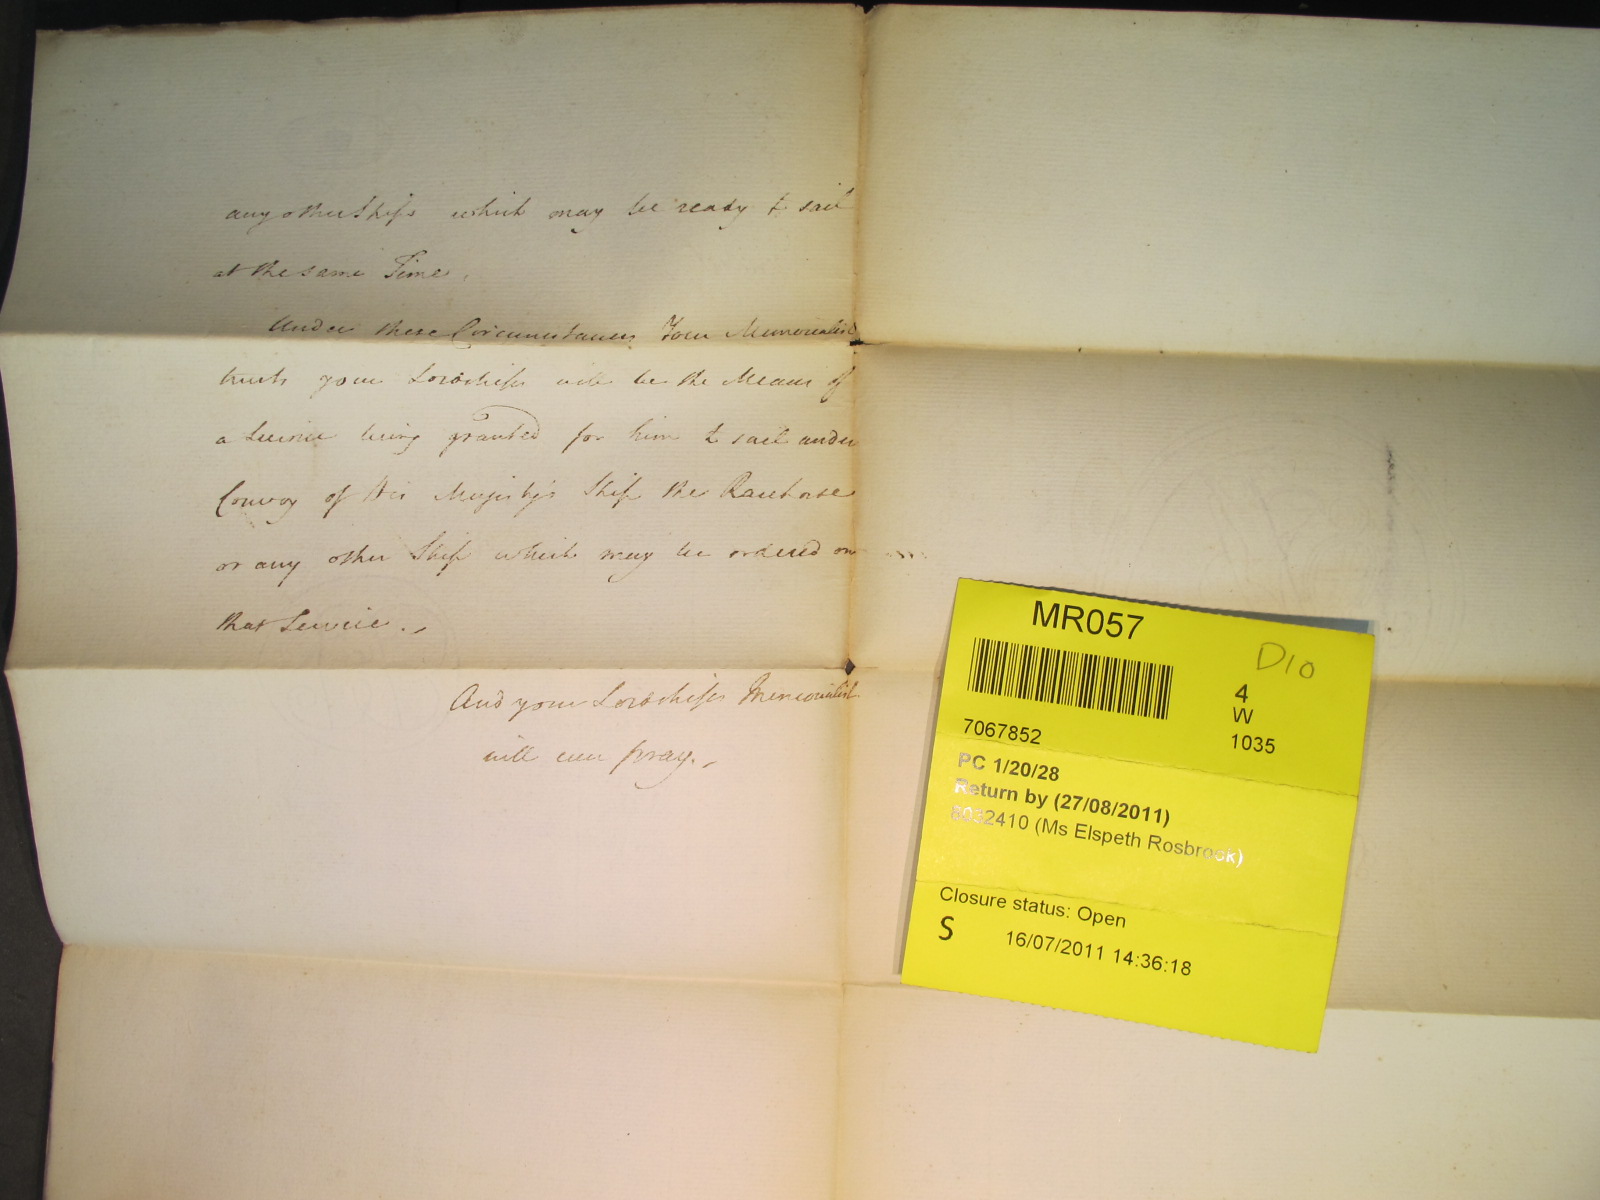 any other Ships which may be ready to sail
at the same Time.
Under these Circumstances Your Memorialist
trusts your Lordships will be the Means of
a Licence being granted for him to sail under
Convoy of His Majesty's Ship the Racehorse
or any other Ship which may be ordered on
that Service.
And your Lordships Memorialist
will ever pray.
MR057
D10
4
W
1035
7067852
PC 1/20/28
Return by (27/08/2011)
8032410 (Ms Elspeth Rosbrook)
Closure status: Open
S
16/07/2011 14:36:18